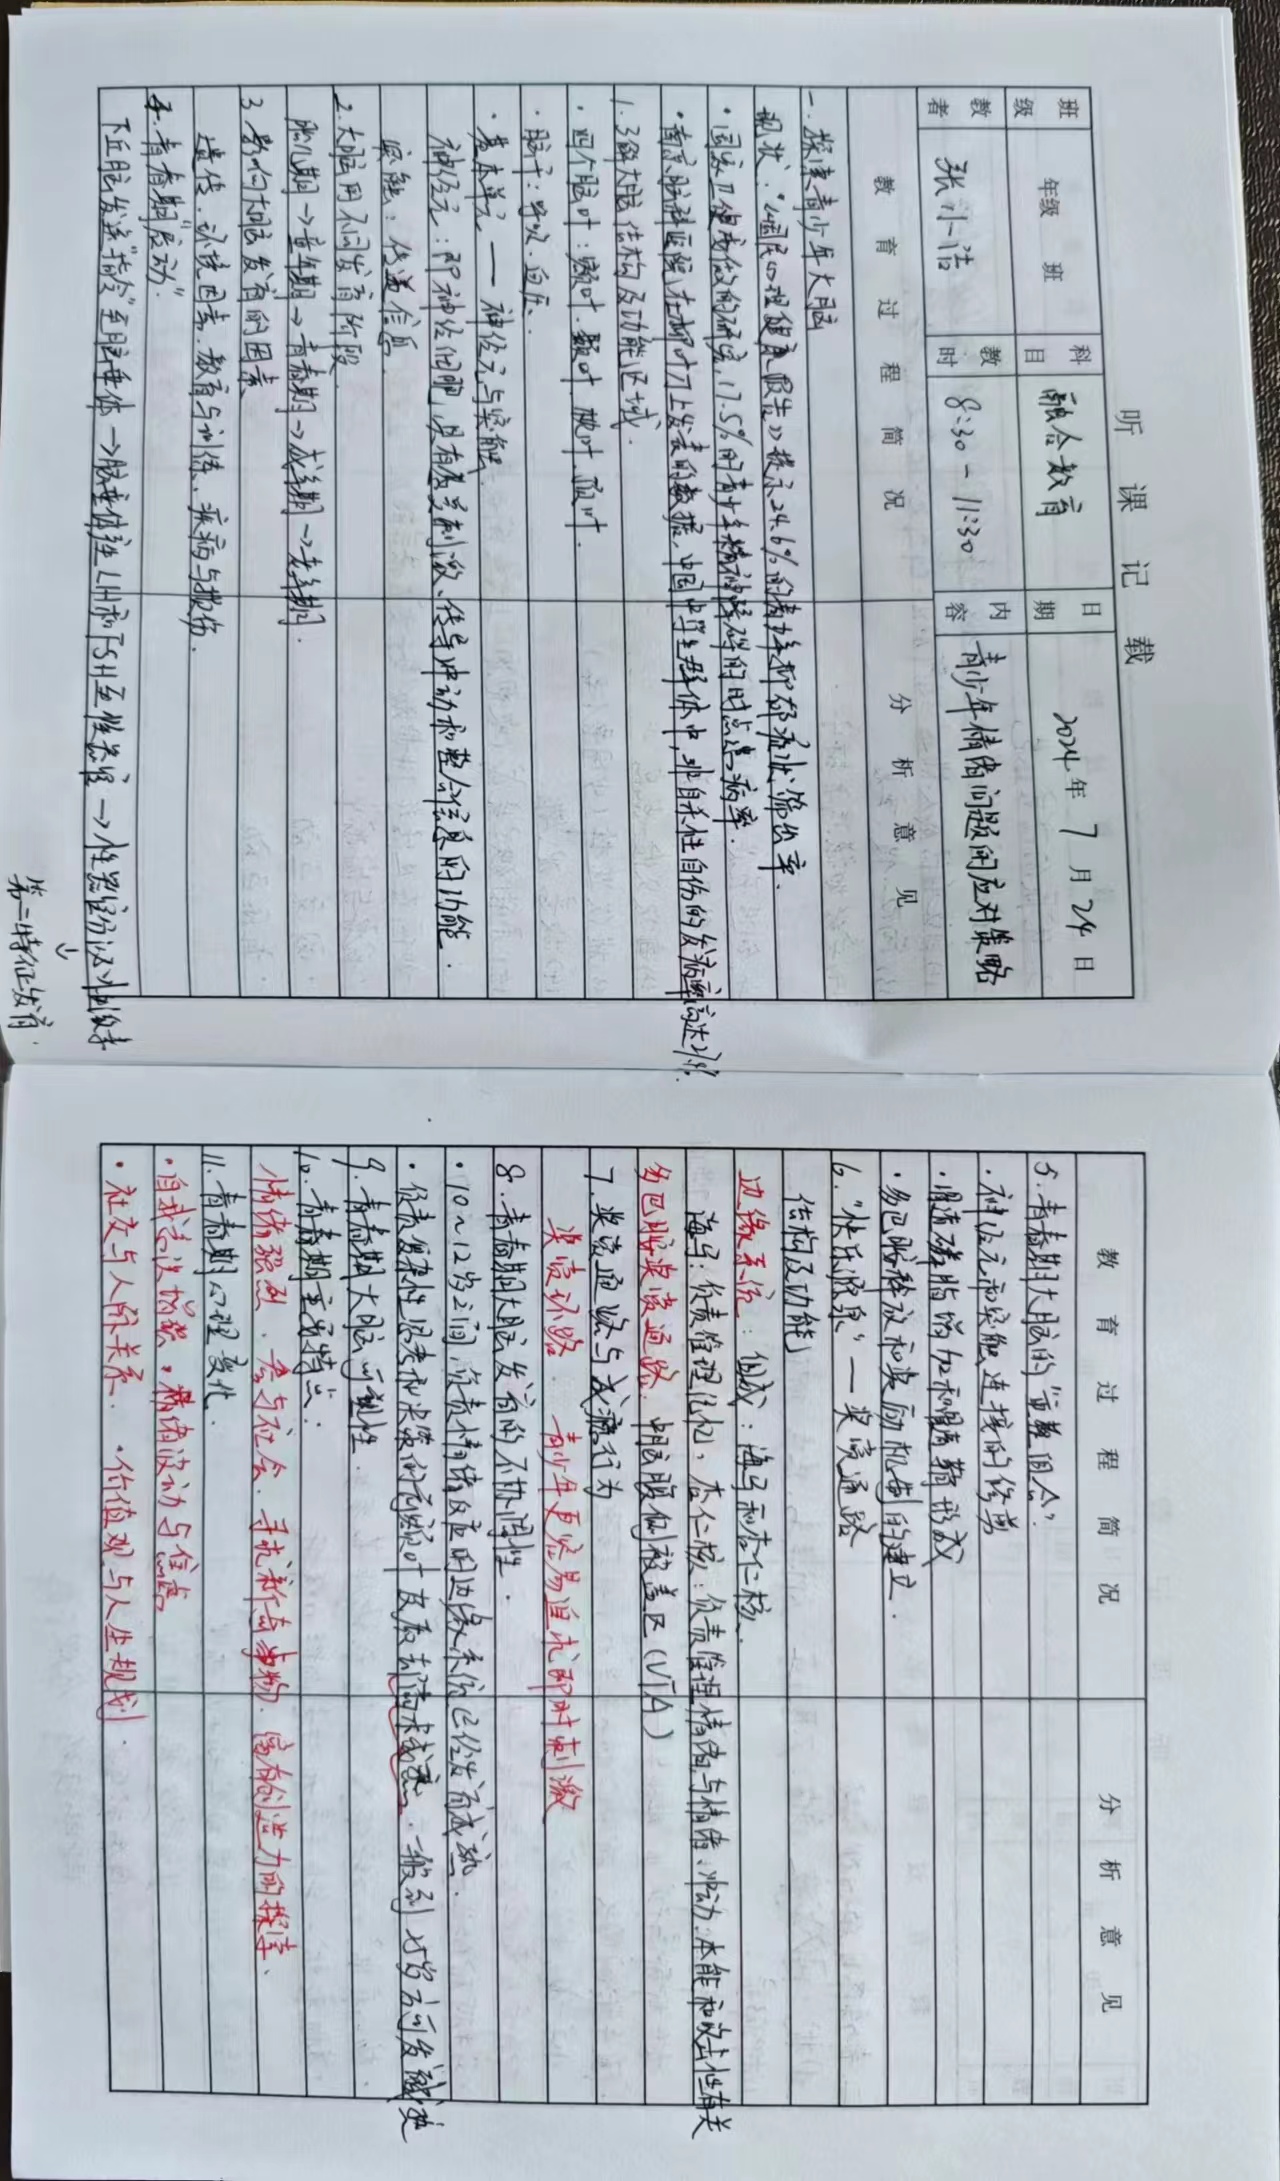 听课记载
班级 年级 班 科目 融合教育 日期 2024年7月24日
教者 张小洁 教时 8:30-11:30 内容 青少年情绪问题的应对策略
教育过程简况 分析意见
一.探索青少年大脑
现状:《国民心理健康报告》提示24.6%的青少年抑郁症状筛出率.
·国家卫健委做的研究,17.5%的青少年精神障碍的时点患病率.
·南京脑科医院在柳叶刀上发表的数据,中国中学生群体中,非自杀性自伤的发病率高达27%.
1.了解大脑结构及功能区域.
·四个脑叶:额叶.颞叶.枕叶.顶叶.
·脑干:呼吸.血压..
·基本单元——神经元与突触.
神经元:即神经细胞,具有感受刺激、传导冲动和整合信息的功能.
突触:传递信息
2.大脑用不同发育阶段
胎儿期→童年期→青春期→成年期→老年期.
3.影响大脑发育的因素
遗传.环境因素.教育与训练、疾病与损伤.
4.青春期"启动".
下丘脑发送"指令"至脑垂体→脑垂体产生LH和FSH至性器官→性器官分泌性激素
↓
第二特征发育.
教育过程简况 分析意见
5.青春期大脑的"重整组合"
·神经元和突触连接的修剪
·髓磷脂增加和髓鞘形成
·多巴胺释放和奖励机制的建立.
6."快乐源泉"—奖赏通路
结构及功能
边缘系统:组成:海马和杏仁核.
海马:负责管理记忆,杏仁核:负责管理情绪,与情绪、冲动.本能和攻击性有关
多巴胺奖赏通路.中脑腹侧被盖区(VTA)
7.奖赏通路与成瘾行为
奖赏环路. 青少年更容易追求即时刺激
8.青春期大脑发育的不协调性.
·10~12岁之间,负责情绪反应的边缘系统已经发育成熟.
·负责复杂性思考和决策的前额叶皮层却尚未成熟.一般到25岁方可发育成熟
9.青春期大脑可塑性.
10.青春期主要特点:
情绪强烈.参与社会.寻找新奇事物.富有创造力的探索.
11.青春期心理变化.
·自我意识增强·情绪波动与焦虑
·社交与人际关系. ·价值观与人生规划.